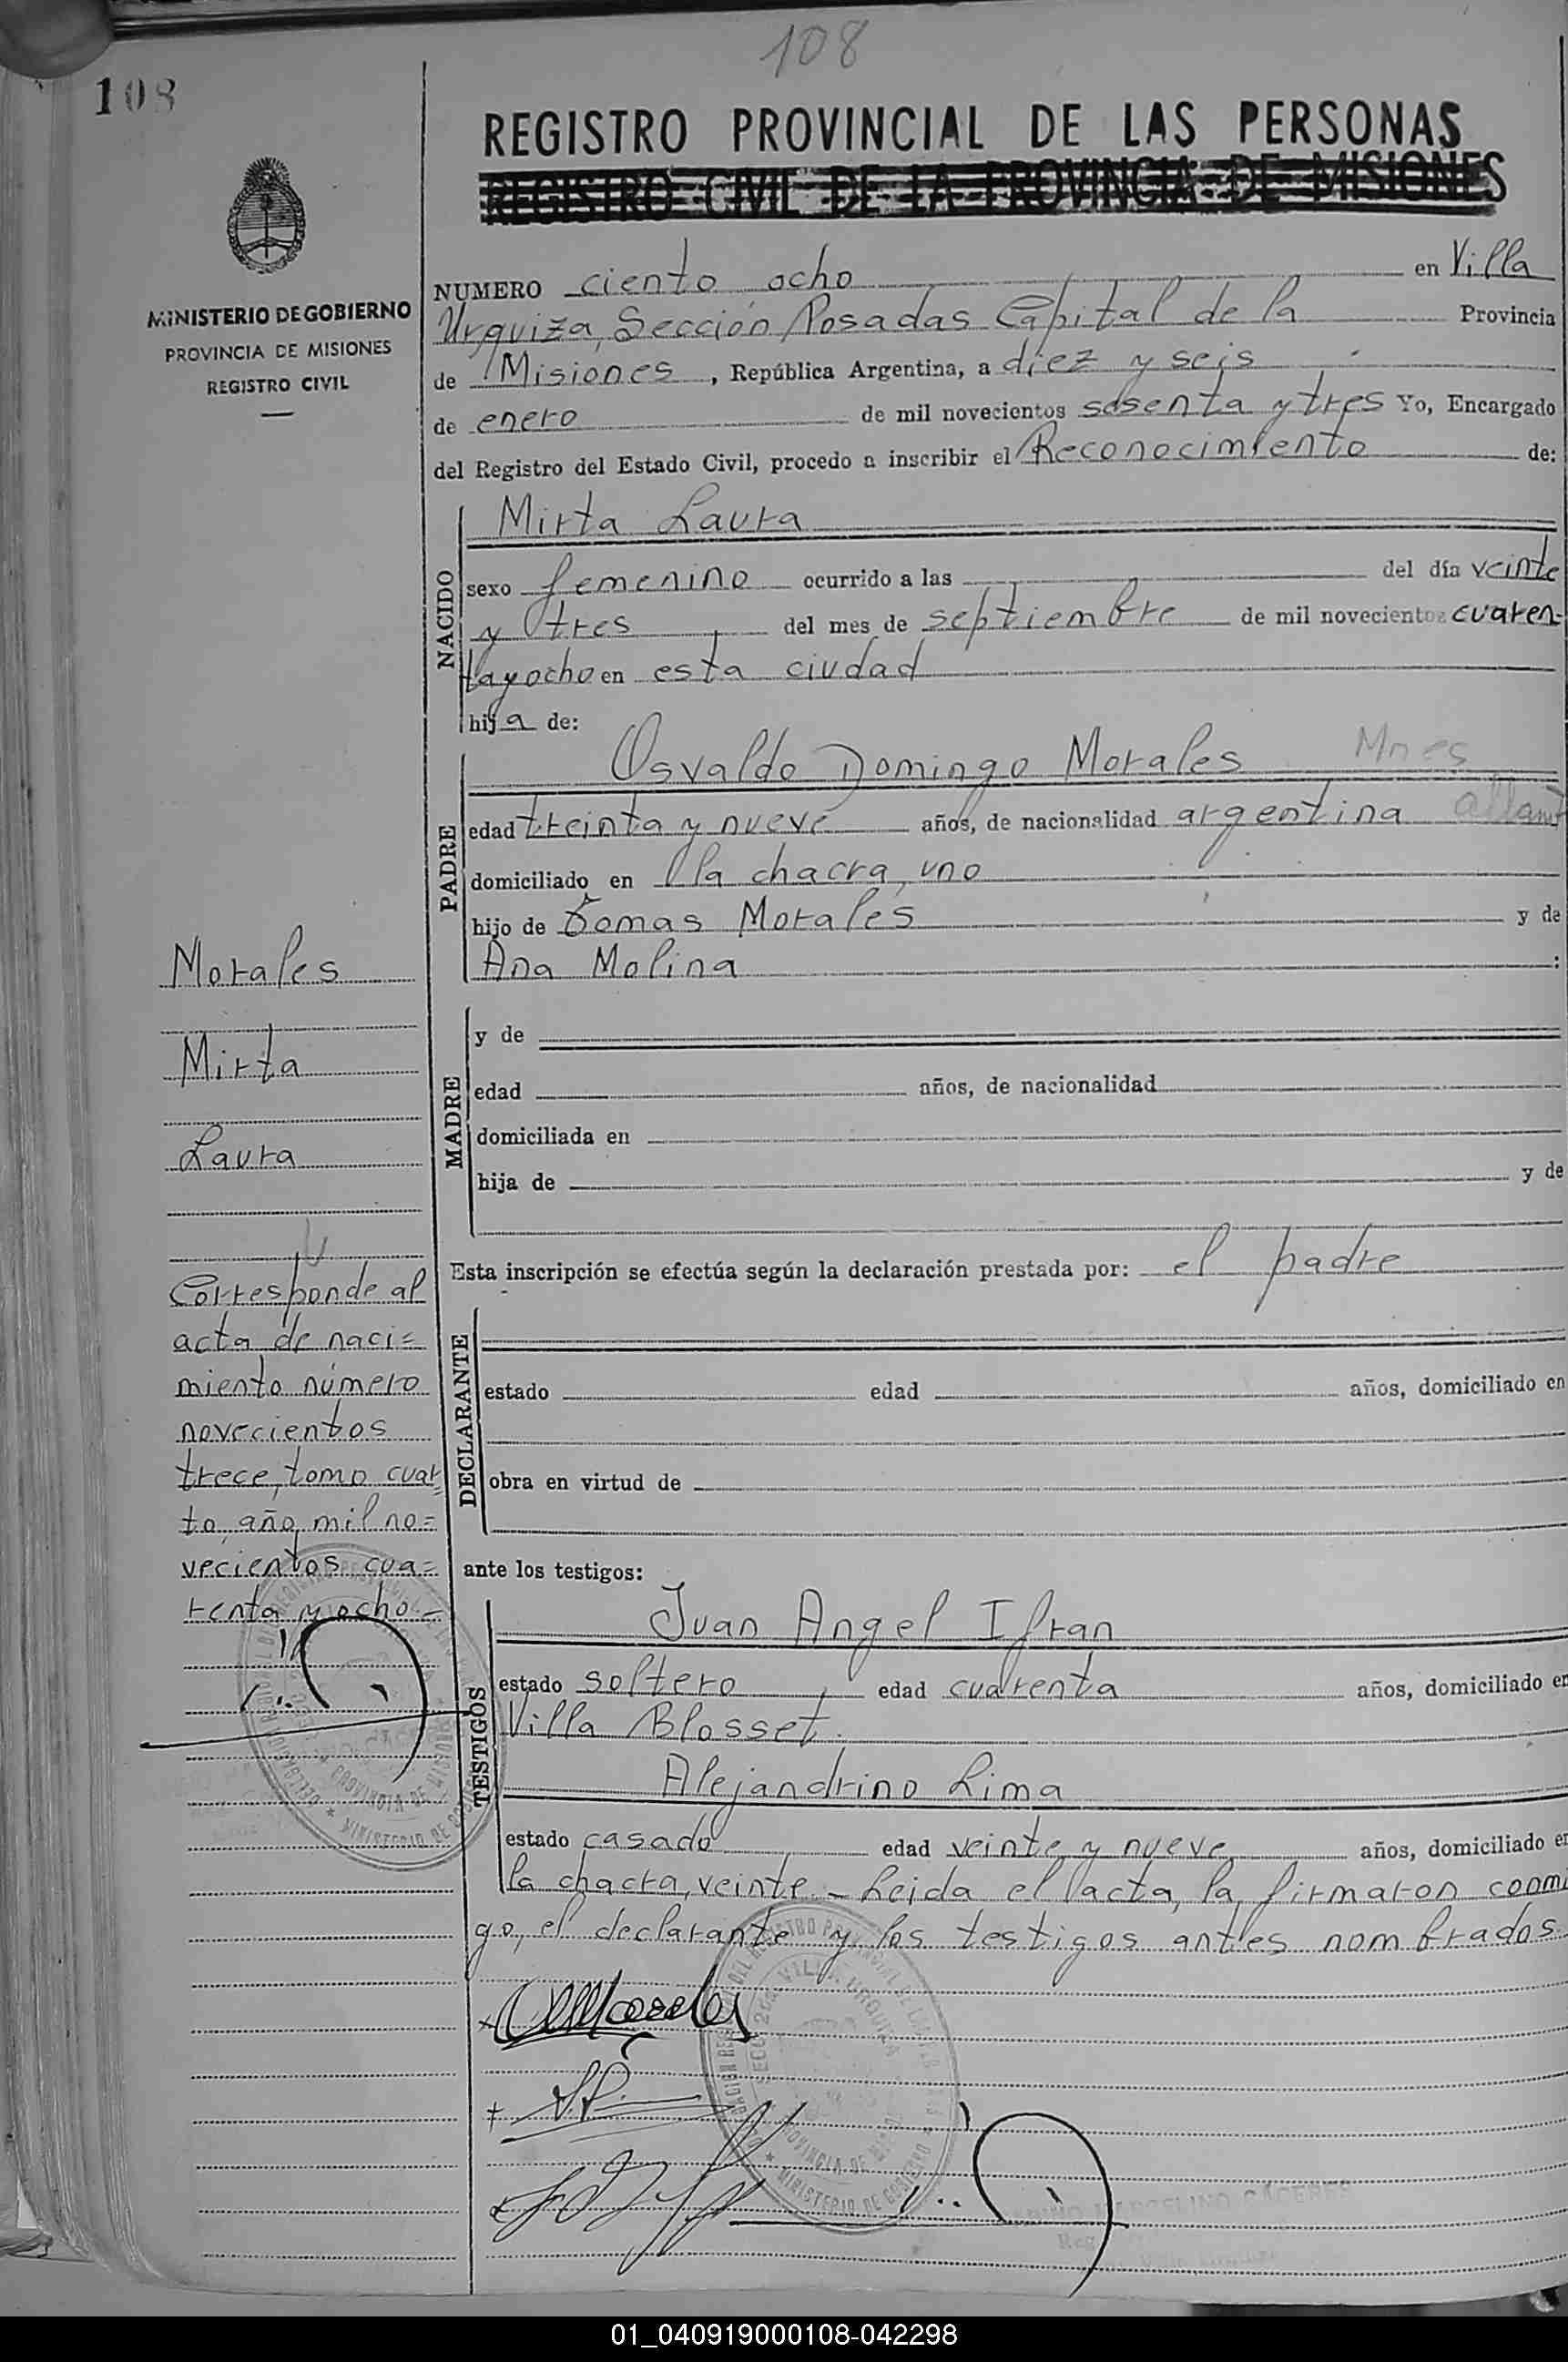 108
108
REGISTRO PROVINCIAL DE LAS PERSONAS
REGISTRO CIVIL DE LA PROVINCIA DE MISIONES
MINISTERIO DE GOBIERNO
PROVINCIA DE MISIONES
REGISTRO CIVIL
NUMERO ciento ocho en Villa
Urquiza, Sección Posadas Capital de la Provincia
de Misiones, República Argentina, a diez y seis
de enero de mil novecientos sesenta y tres Yo, Encargado
del Registro del Estado Civil, procedo a inscribir el Reconocimiento de:
NACIDO
Mirta Laura
sexo femenino ocurrido a las del día veinte
y tres del mes de septiembre de mil novecientos cuaren-
tayocho en esta ciudad
hija de:
PADRE
Osvaldo Domingo Morales Mnes
edad treinta y nueve años, de nacionalidad argentina
domiciliado en la chacra, uno
hijo de Tomas Morales y de
Ana Molina :
MADRE
y de
edad años, de nacionalidad
domiciliada en
hija de y de
Esta inscripción se efectúa según la declaración prestada por: el padre
DECLARANTE
estado edad años, domiciliado en
obra en virtud de
ante los testigos:
TESTIGOS
Juan Angel Ifran
estado soltero edad cuarenta años, domiciliado en
Villa Blosset.
Alejandrino Lima
estado casado edad veinte y nueve años, domiciliado en
la chacra, veinte - Leida el acta, la firmaron conmi
go, el declarante y los testigos antes nombrados
Morales
Mirta
Laura
Corresponde al
acta de naci=
miento número
novecientos
trece, tomo cuar
to, año mil no=
vecientos cua=
renta y ocho -
MINISTERIO DE GOBIERNO
VILLA URQUIZA
PROVINCIA DE
MINISTERIO DE GOBIERNO
MARCELINO CÁCERES
01_040919000108-042298